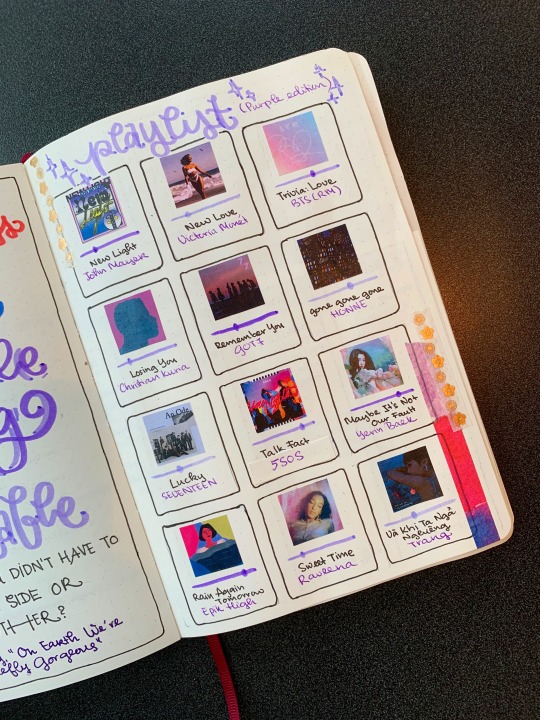 playlist
(Purple edition)
New Light
John Mayer
New Love
Victoria Monét
Trivia: Love
BTS (RM)
Losing You
Christian Kuria
Remember You
GOT7
gone gone gone
HONNE
An Ode
Lucky
SEVENTEEN
Talk Fast
5SOS
Maybe It's Not
Our Fault
Yerin Baek
Rain Again
Tomorrow
Epik High
Sweet Time
Raveena
Và Khi Ta Ngả
Nghiêng
Trang
DIDN'T HAVE TO
SIDE OR
HER?
"On Earth We're
Gorgeous"